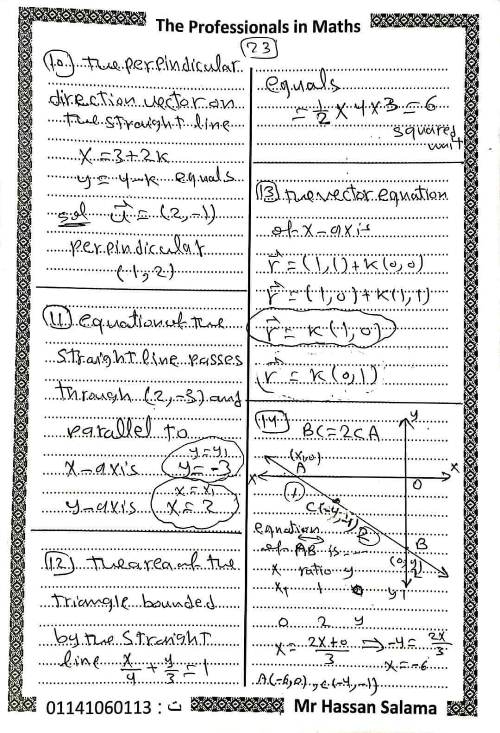 The Professionals in Maths
23
10. the perpindicular
direction vector on
the straight line
x = 3 + 2k
y = 4 - k equals
sol u = (2, -1)
perpindicular
(1, 2)
11. equation of the
straight line passes
through (2, -3) and
parallel to
y = y₁
x-axis y = -3
x = x₁
y-axis x = 2
12. the area of the
triangle bounded
by the straight
line x/4 + y/3 = 1
equals
= 1/2 × 4 × 3 = 6
squared
unit
13. the vector equation
of x-axis
r = (1, 1) + k(0, 0)
r = (1, 0) + k(1, 1)
r = k(1, 0)
r = k(0, 1)
14.
BC = 2CA
y
(x, 0)
x A O x
1
C(-4, -1) 2
B
(0, y)
y
equation
of AB is
x ratio y
x, 1
0 2 y
x = 2x + 0 / 3 ⇒ -4 = 2x / 3
x = -6
A(-6, 0), c(-4, -1)
01141060113 : ت Mr Hassan Salama